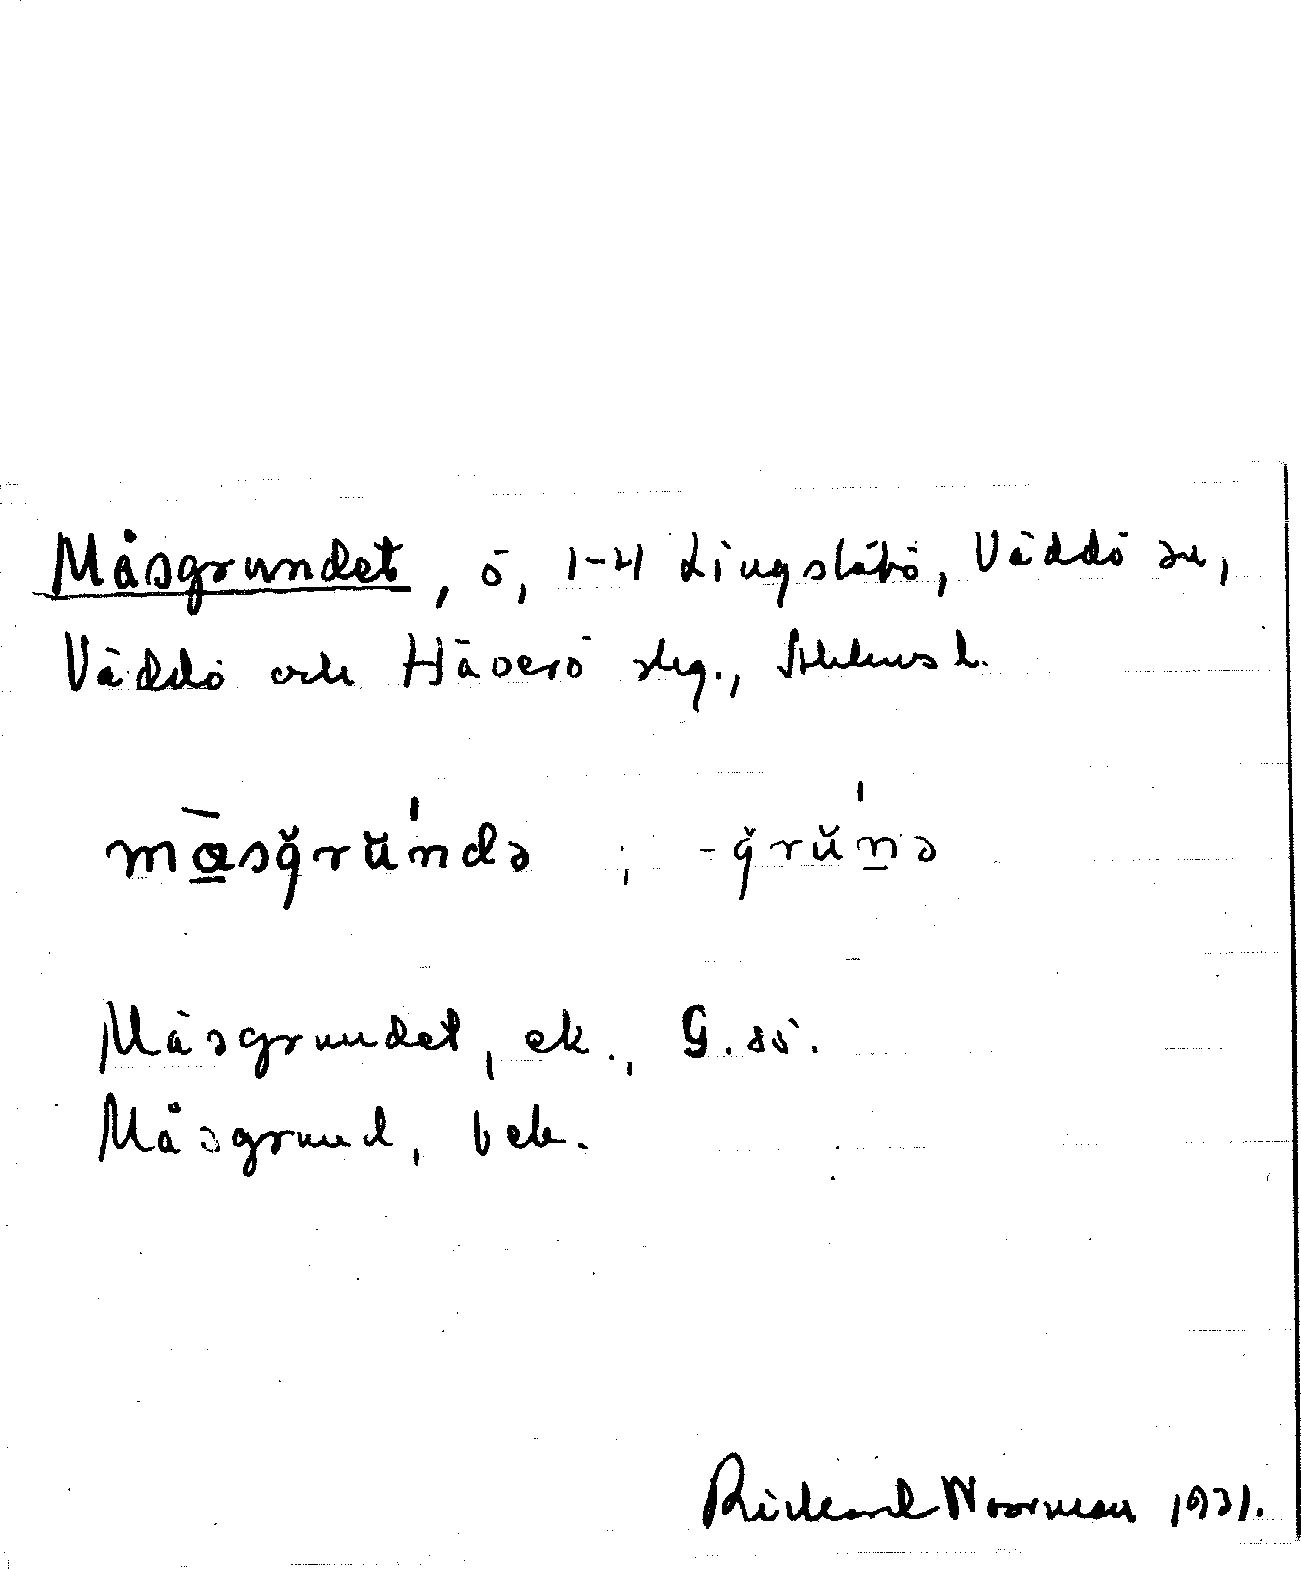 Måsgrundet, ö, 1-4 Lingslätö, Väddö sn,
Väddö och Häverö slg., Sthlms l.
må̀sgrŭ́ndə ; -grŭ́nə
Måsgrundet, ek., G. sö.
Måsgrund, bek.
Rickard Noorman 1931.